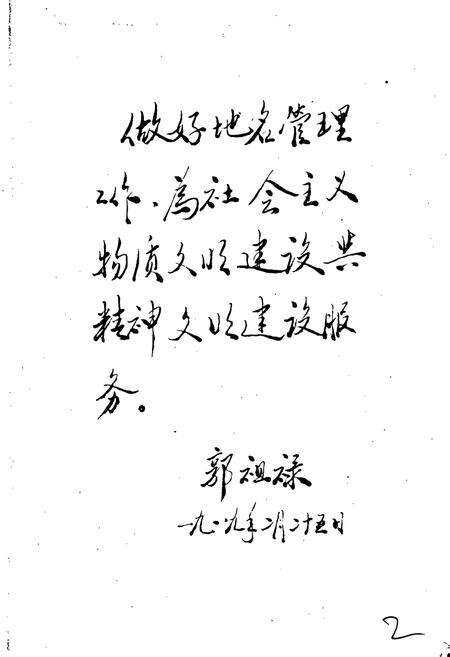 做好地名管理
工作、為社会主义
物质文明建设与
精神文明建设服
务。
郭祖禄
一九八九年二月二十五日
2